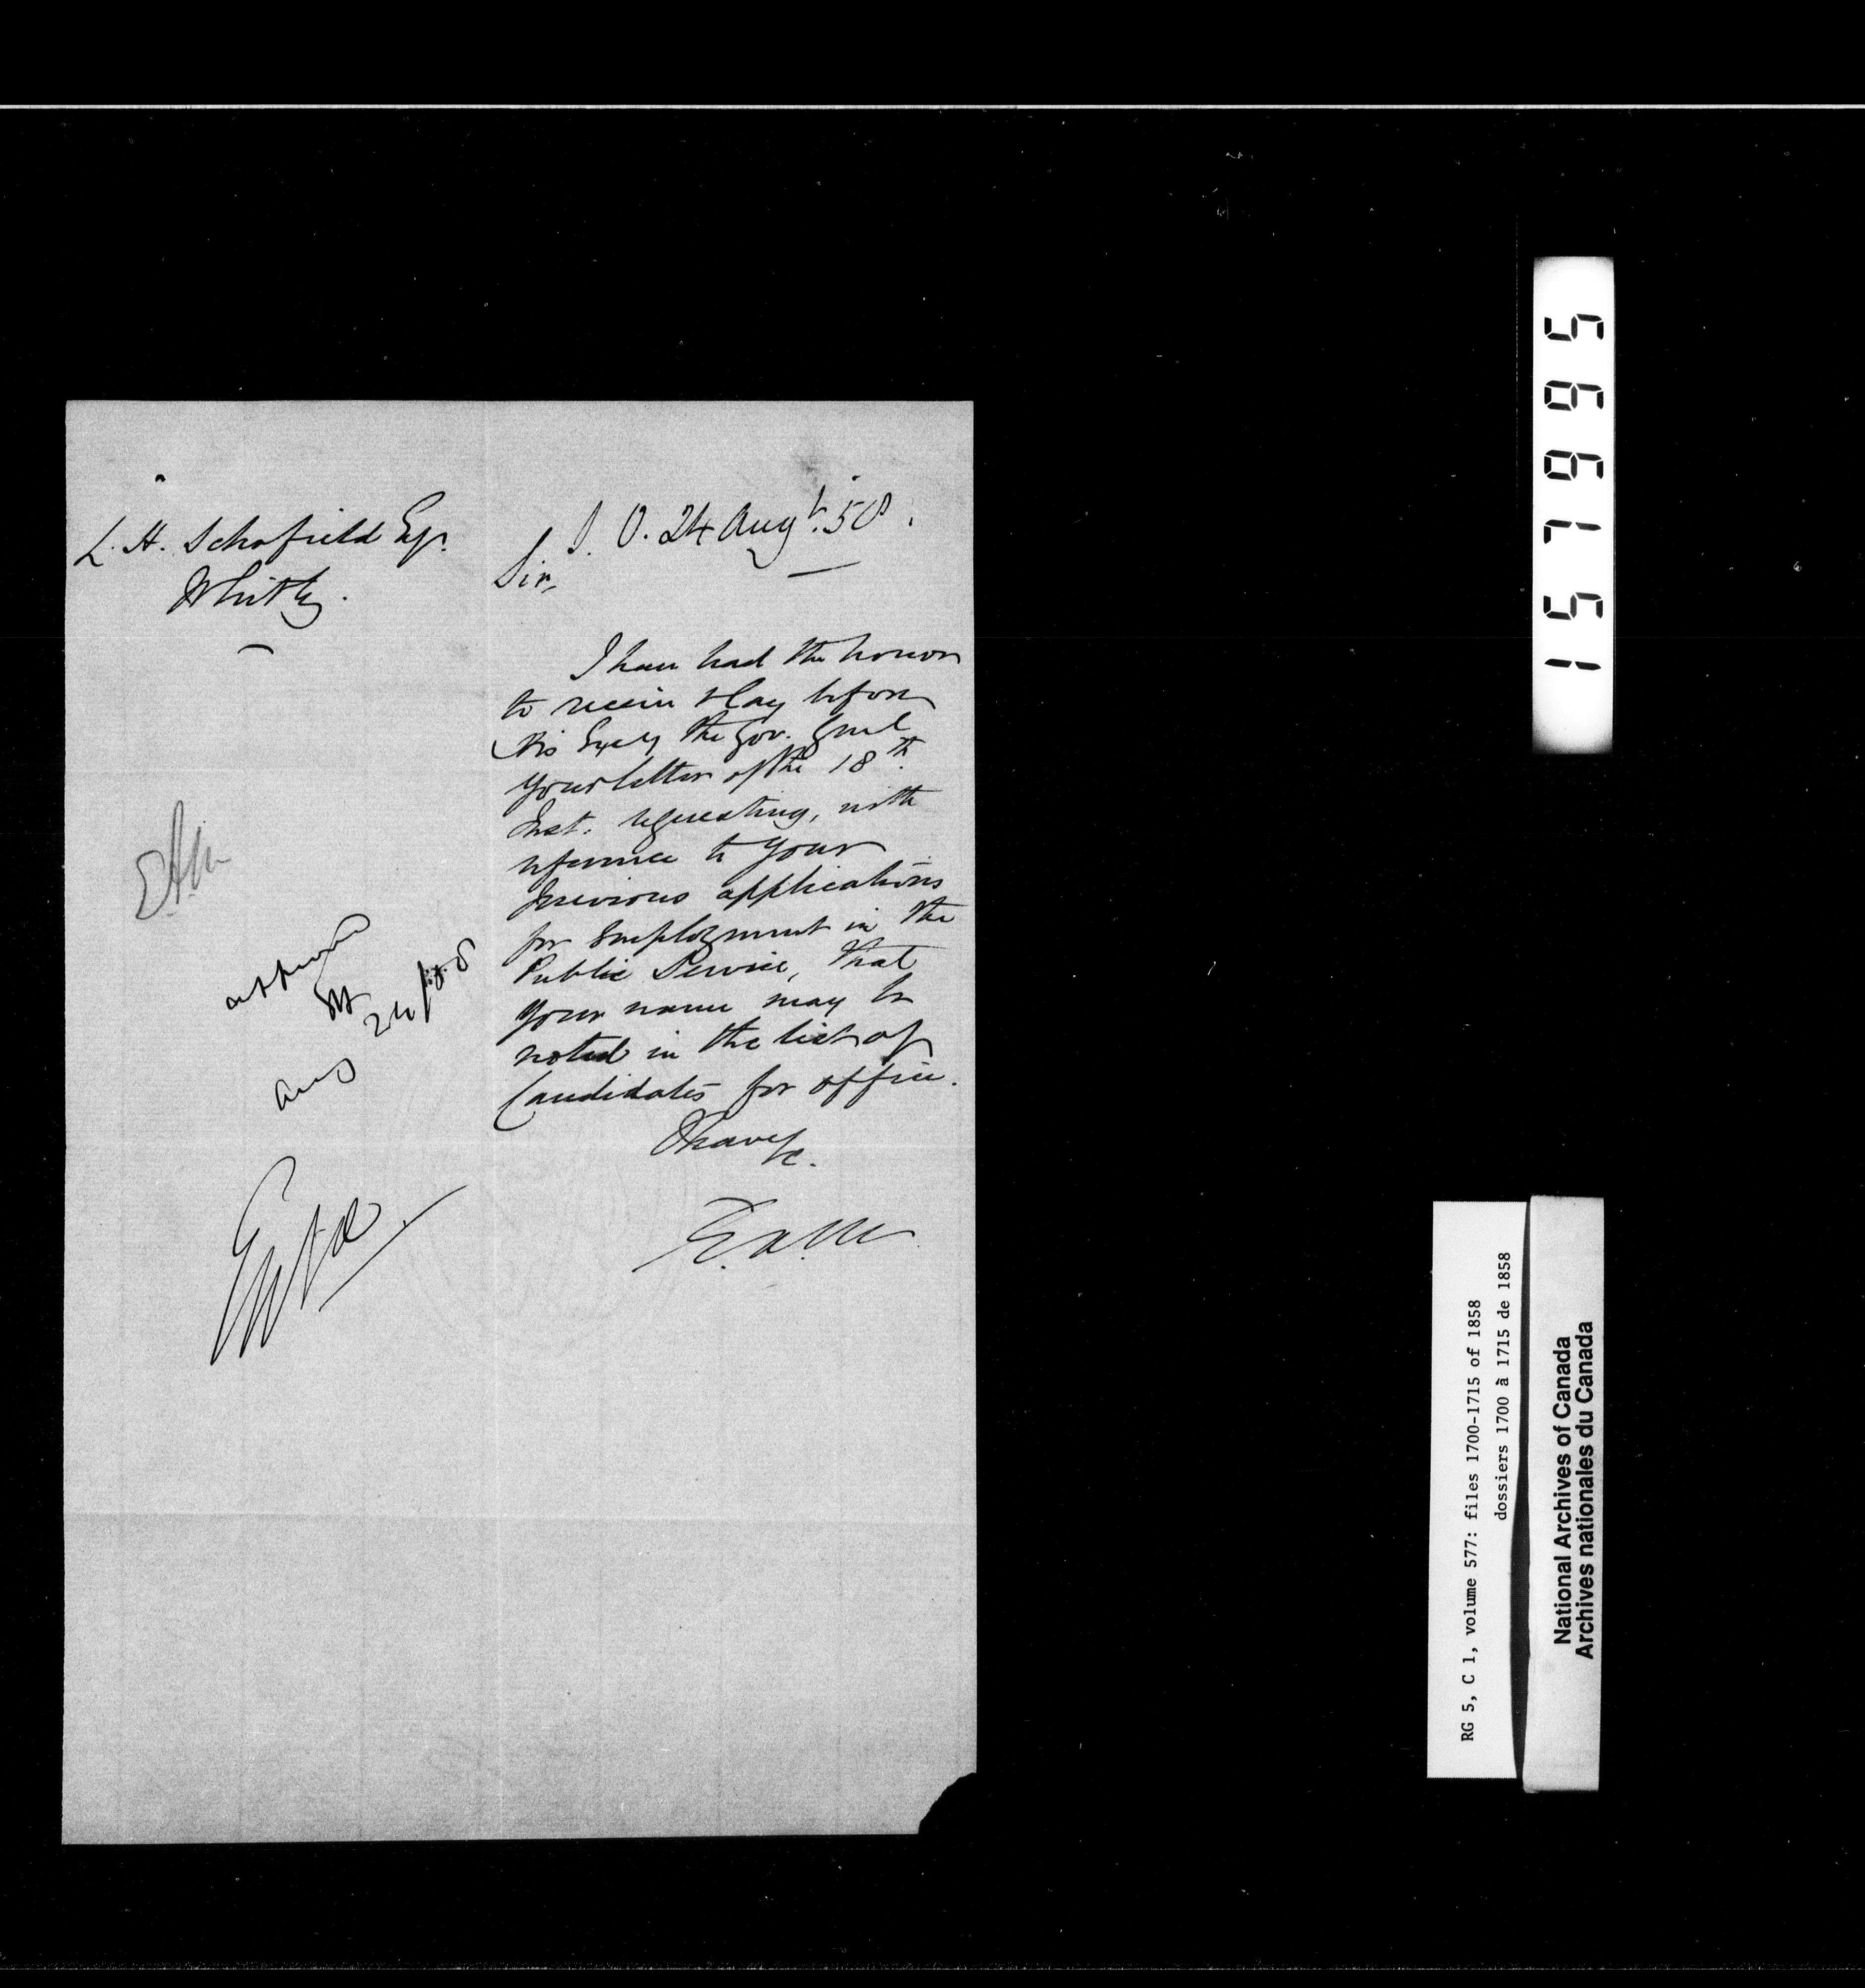 L. H. Schofield Esqr.
Whitby.
S. O. 24 Augt. 58.
Sir,
I have had the honor
to receive & lay before
His Excy the Gov. Genl
your letter of the 18th
Inst. requesting, with
reference to your
previous applications
for employment in the
Public Service, that
your name may be
noted in the list of
Candidates for office.
I have &c.
E. A. M
E.A.M
approved
Aug 24/58
15 16 6 5
RG 5, C 1, volume 577: files 1700-1715 of 1858
dossiers 1700 à 1715 de 1858
National Archives of Canada
Archives nationales du Canada